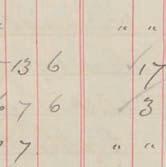 " "
13 6 17
7 6 3
7 " "